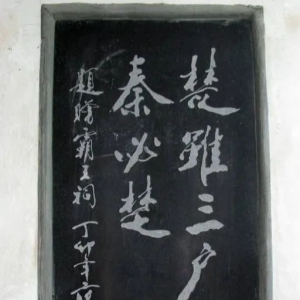 楚雖三户
秦必楚
題贈霸王祠 丁卯年